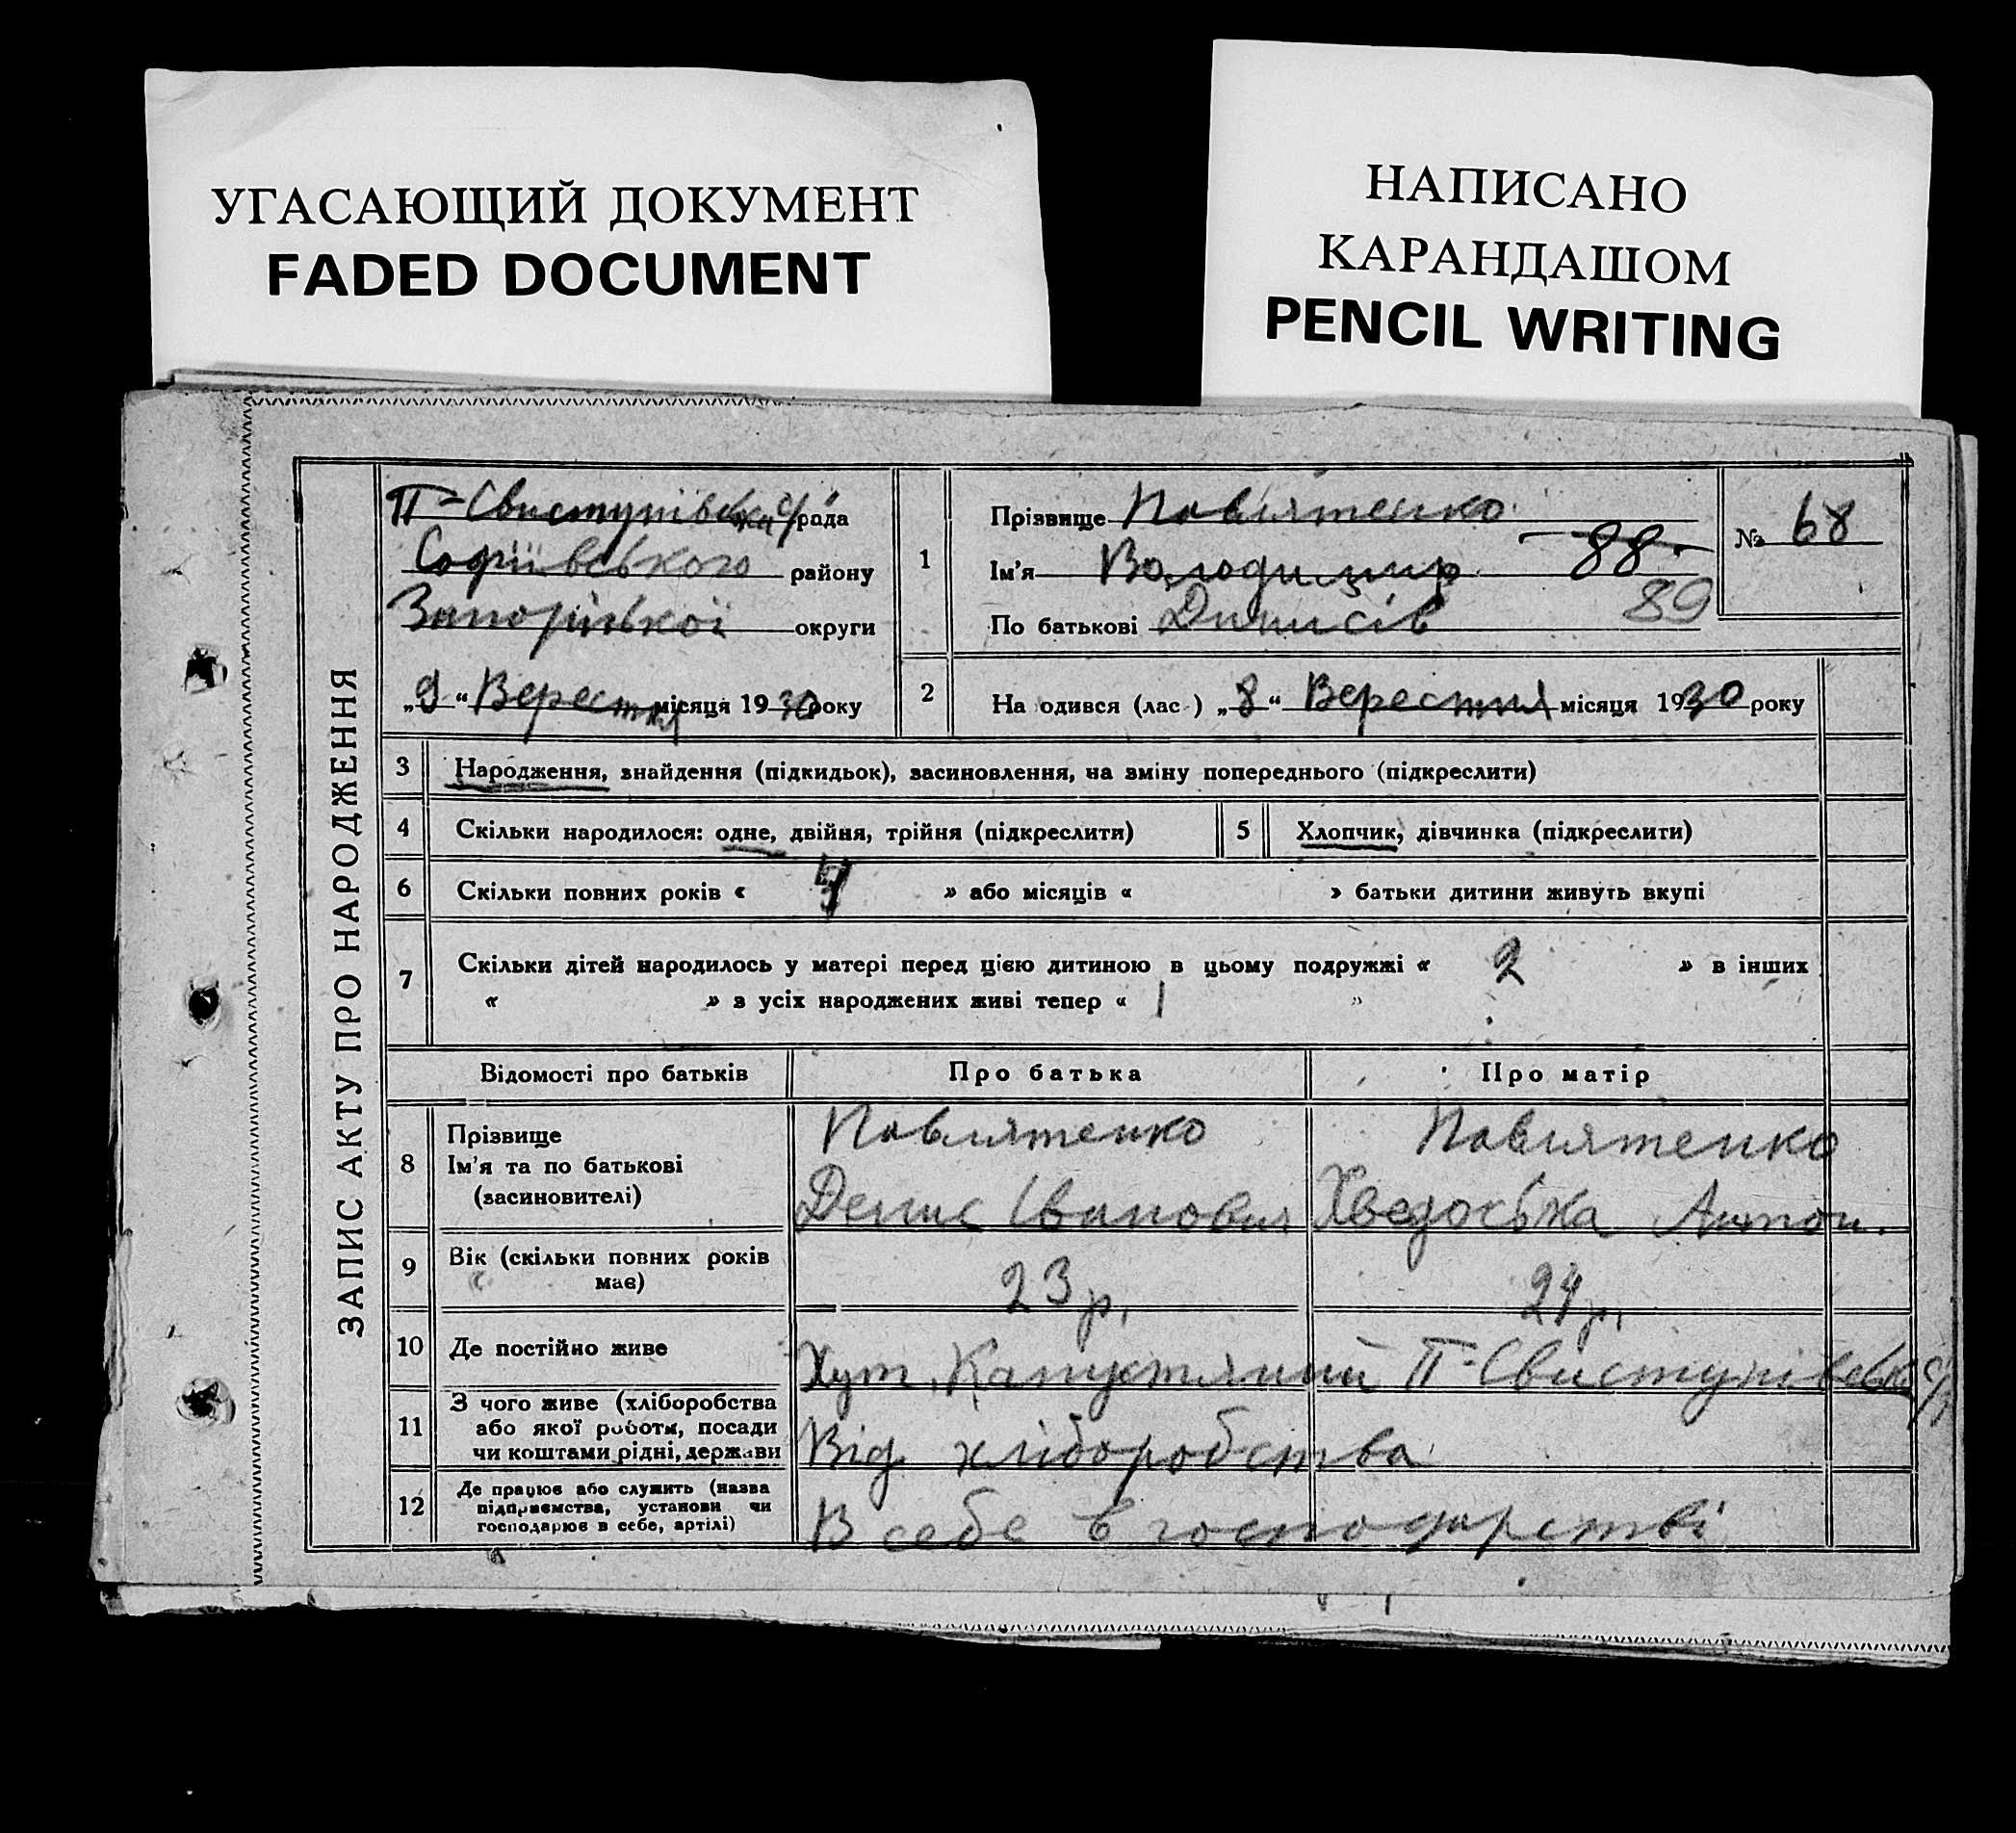 УГАСАЮЩИЙ ДОКУМЕНТ
FADED DOCUMENT
НАПИСАНО
КАРАНДАШОМ
PENCIL WRITING
ЗАПИС АКТУ ПРО НАРОДЖЕННЯ
ІІ-Свистунівська с/рада
Софіївського району
Запоріської округи
„9“ Верестня місяця 1930 року
1
Прізвище Повлятенко
Ім'я Володимир 88
По батькові Динисів 89
№ 68
2
На одився (лас ) „8“ Верестня місяця 1930 року
3 Народження, знайдення (підкидьок), засиновлення, на зміну попереднього (підкреслити)
4 Скільки народилося: одне, двійня, трійня (підкреслити) 5 Хлопчик, дівчинка (підкреслити)
6 Скільки повних років « 4 » або місяців « » батьки дитини живуть вкупі
7 Скільки дітей народилось у матері перед цією дитиною в цьому подружжі « 2 » в інших
« » з усіх народжених живі тепер « 1 »
Відомості про батьків Про батька Про матір
8 Прізвище
Ім'я та по батькові
(засиновителі)
Повлятенко
Денис Іванович
Повлятенко
Хведоська Антон.
9 Вік (скільки повних років
має)
23 р. 24 р.
10 Де постійно живе Хут. Капустяний ІІ-Свистунівськ с/р
11 З чого живе (хліборобства
або якої роботи, посади
чи коштами рідні, держави
Від хліборобства
12 Де працює або служить (назва
підприємства, установи чи
господарює в себе, артілі)
В себе в господарстві